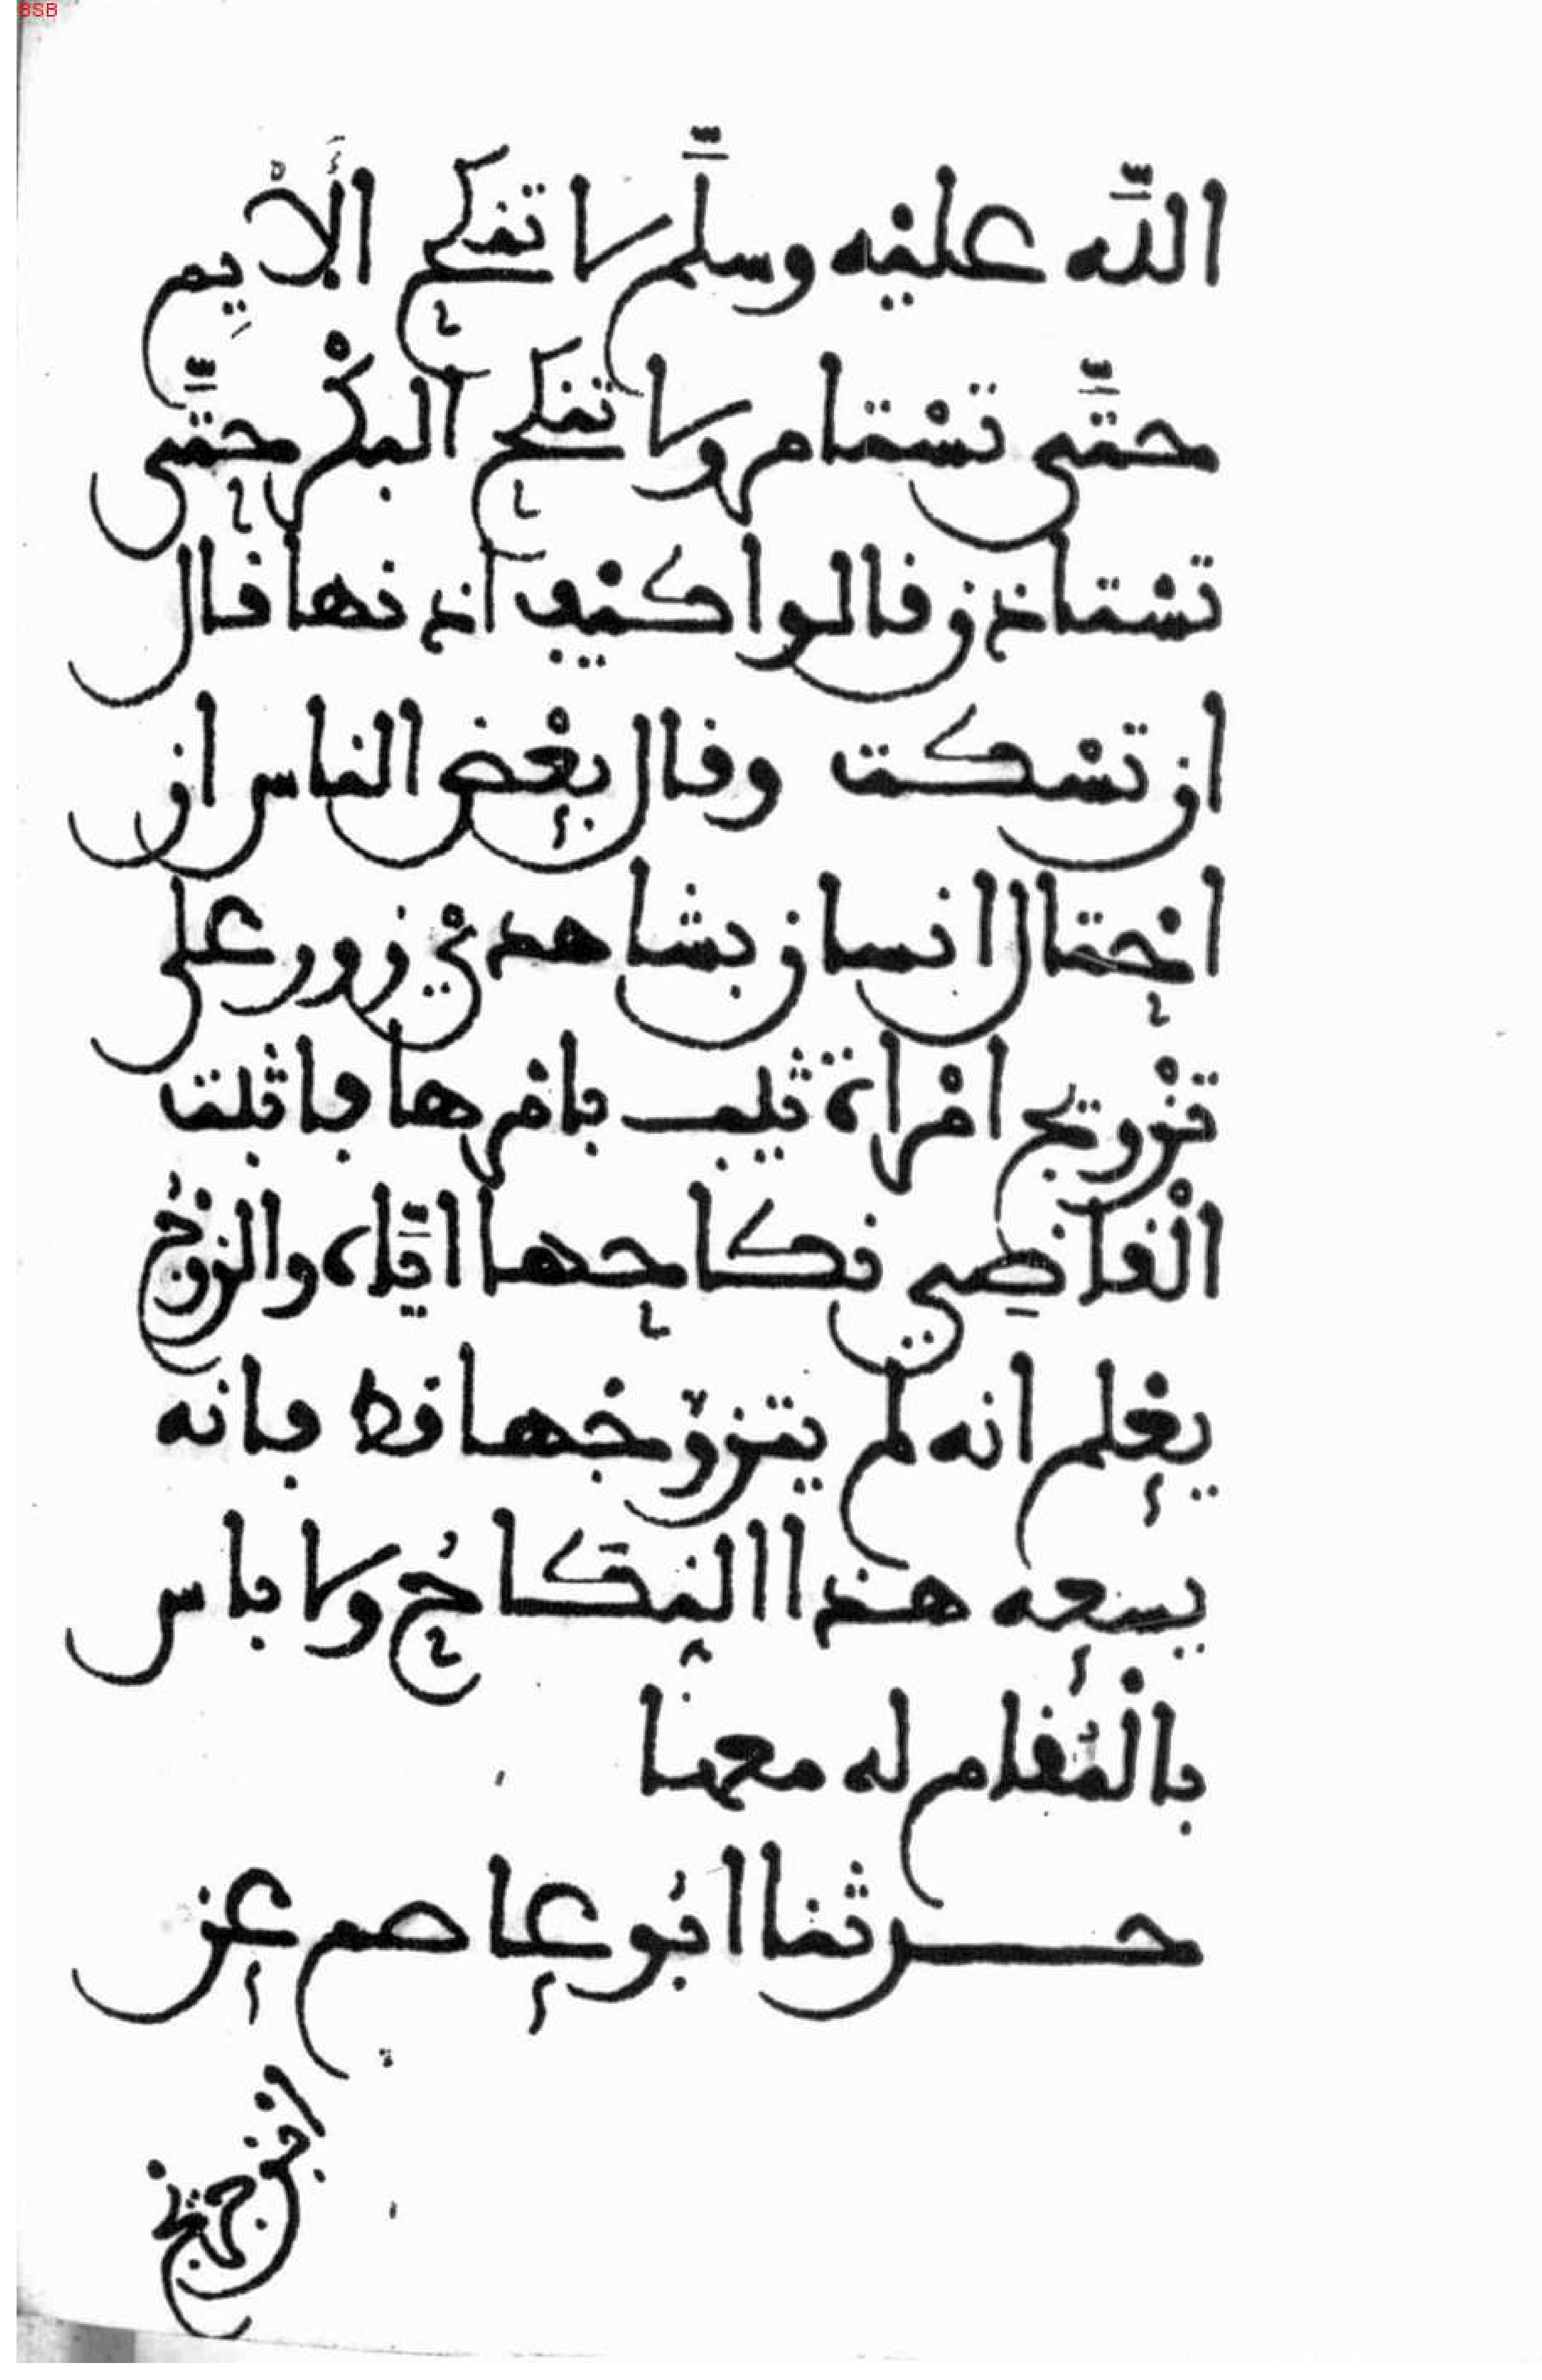 BSB
الله عليْه وسلَّم لا تنكح الْأَيِم
حتَّى تسْتامر ولا تنكح البكْر حتَّى
تسْتاذن قالوا كيْف اذنها قال
ان تسْكت وقال بعْض الناس ان
احْتال انسان بشاهديْ زور على
تزْويج امْراة ثيب بامْرها فاثْبت
الْقاضِي نكاحها ايَّاه والزوْجُ
يعْلم انه لم يتزوّجْها قط فانه
يسعه هذا النِّكاحُ ولا باس
بالْمُقام له معها
حدثنا ابُو عاصم عن
ابْن جريْج